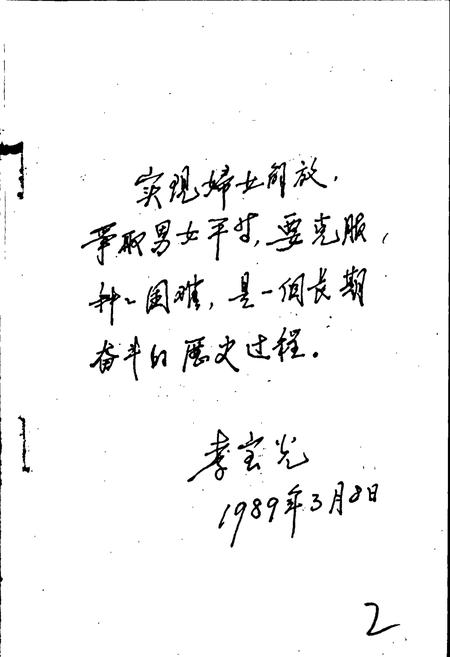 实现婦女解放，
争取男女平等，要克服，
种种困难，是一個长期
奋斗的歷史过程。
李宝光
1989年3月8日
2